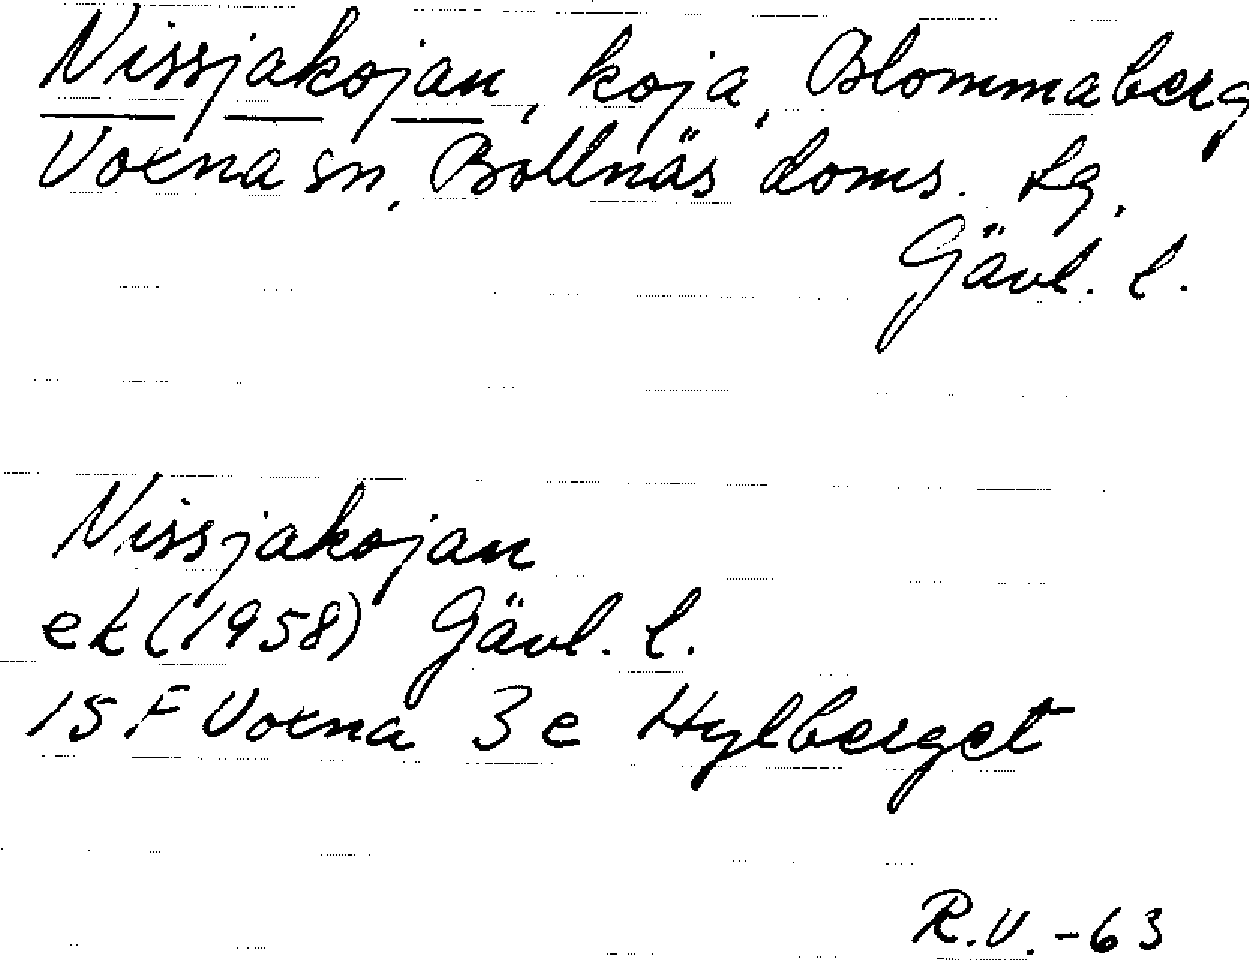 Nissjakojan, koja, Blommaberg
Voxna sn, Bollnäs doms. tg,
Gävl. l.
Nissjakojan
ek (1958) Gävl. l.
15 F Voxna 3 e Hylberget
R.V. -63